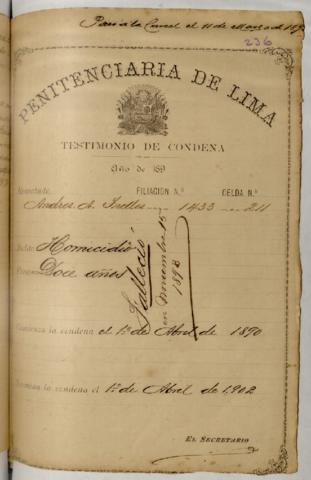 Pasó á la Carcel el 11 de Marzo de 189
236
PENITENCIARIA DE LIMA
TESTIMONIO DE CONDENA
Año de 189
Rematado FILIACION N.º CELDA N.º
Andres A. 1433 211
Delito Homicidio
Pena Doce años
Falleció
en Noviembre 15
1893
Comienza la condena el 1º de Abril de 1890
Termina la condena el 1º de Abril de 1,902
EL SECRETARIO